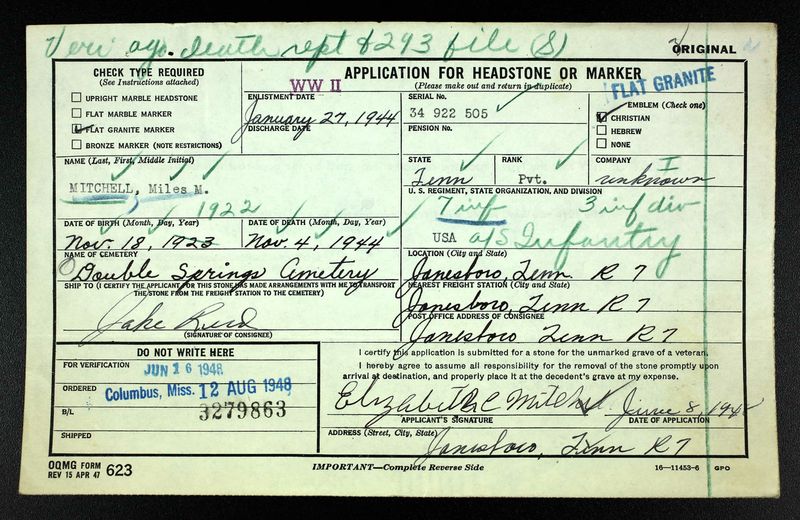 Veri ago. death rept & 293 file (S)
ORIGINAL
CHECK TYPE REQUIRED
(See Instructions attached)
UPRIGHT MARBLE HEADSTONE
FLAT MARBLE MARKER
FLAT GRANITE MARKER
BRONZE MARKER (NOTE RESTRICTIONS)
WW II
APPLICATION FOR HEADSTONE OR MARKER
(Please make out and return in duplicate)
FLAT GRANITE
ENLISTMENT DATE
January 27, 1944
DISCHARGE DATE
SERIAL No.
34 922 505
PENSION No.
EMBLEM (Check one)
CHRISTIAN
HEBREW
NONE
NAME (Last, First, Middle Initial)
MITCHELL, Miles M.
STATE
Tenn
RANK
Pvt.
COMPANY
I
unknown
U. S. REGIMENT, STATE ORGANIZATION, AND DIVISION
7 inf 3 inf div
USA a/s Infantry
1922
DATE OF BIRTH (Month, Day, Year)
Nov. 18, 1923
DATE OF DEATH (Month, Day, Year)
Nov. 4, 1944
NAME OF CEMETERY
Double Springs Cemetery
LOCATION (City and State)
Jonesboro, Tenn. R 7
SHIP TO (I CERTIFY THE APPLICANT FOR THIS STONE HAS MADE ARRANGEMENTS WITH ME TO TRANSPORT
THE STONE FROM THE FREIGHT STATION TO THE CEMETERY)
Jake Reed
(SIGNATURE OF CONSIGNEE)
NEAREST FREIGHT STATION (City and State)
Jonesboro, Tenn R 7
POST OFFICE ADDRESS OF CONSIGNEE
Jonesboro Tenn R 7
DO NOT WRITE HERE
FOR VERIFICATION
JUN 16 1948
ORDERED
Columbus, Miss. 12 AUG 1948
B/L
3279863
SHIPPED
I certify this application is submitted for a stone for the unmarked grave of a veteran.
I hereby agree to assume all responsibility for the removal of the stone promptly upon
arrival at destination, and properly place it at the decedent's grave at my expense.
Elizabeth C Mitchell June 8, 1948
APPLICANT'S SIGNATURE
DATE OF APPLICATION
ADDRESS (Street, City, State)
Jonesboro, Tenn R 7
OQMG FORM
REV 15 APR 47 623
IMPORTANT—Complete Reverse Side
16—11453-6 GPO